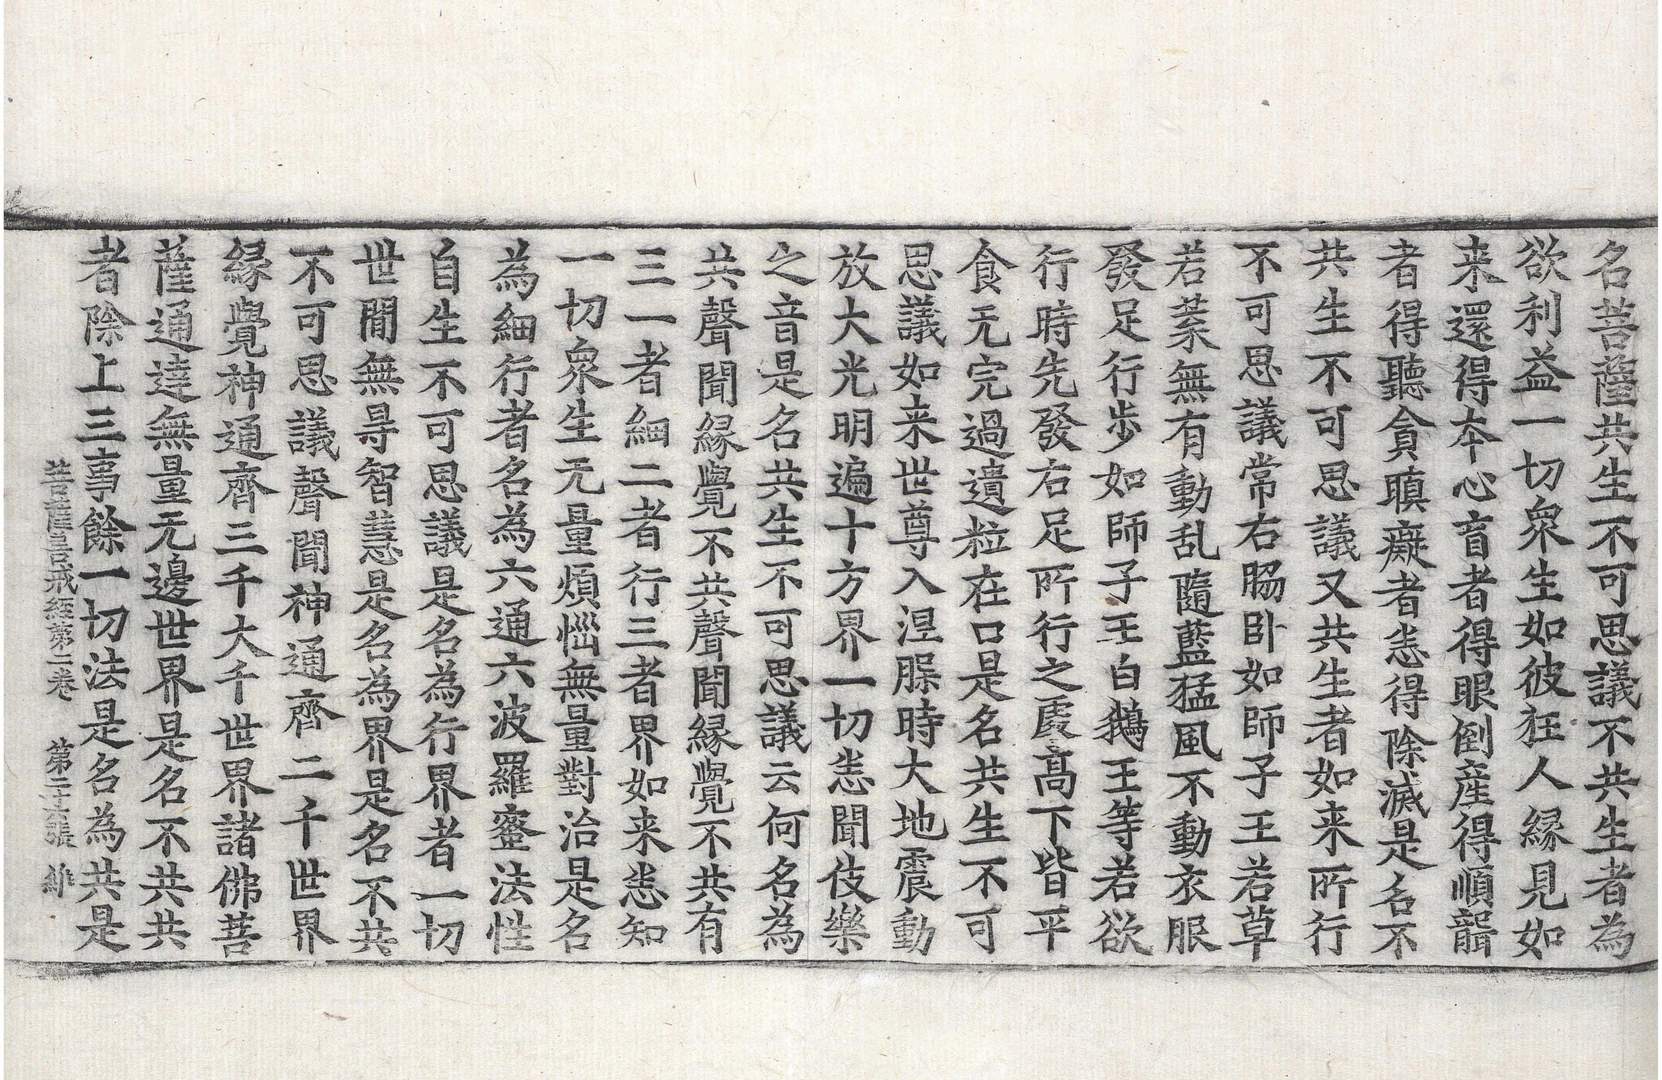 名菩薩共生不可思議不共生者為
欲利益一切衆生如彼狂人縁見如
来還得夲心盲者得眼倒産得順聾
者得聽貪瞋癡者悉得除滅是名不
共生不可思議又共生者如来所行
不可思議常右脇卧如師子王若草
若菓無有動乱隨藍猛風不動衣服
發足行步如師子王白鵝王等若欲
行時先發右足所行之處高下皆平
食无完過遺粒在口是名共生不可
思議如来世尊入涅槃時大地震動
放大光明遍十方界一切悉聞伎樂
之音是名共生不可思議云何名為
共聲聞縁覺不共聲聞縁覺不共有
三一者細二者行三者界如来悉知
一切衆生无量煩惱無量對治是名
為細行者名為六通六波羅蜜法性
自生不可思議是名為行界者一切
世間無㝵智慧是名為界是名不共
不可思議聲聞神通齊二千世界
縁覺神通齊三千大千世界諸佛菩
薩通達無量无邊世界是名不共共
者除上三事餘一切法是名為共是
菩薩善戒經第二卷 第二十六張 維